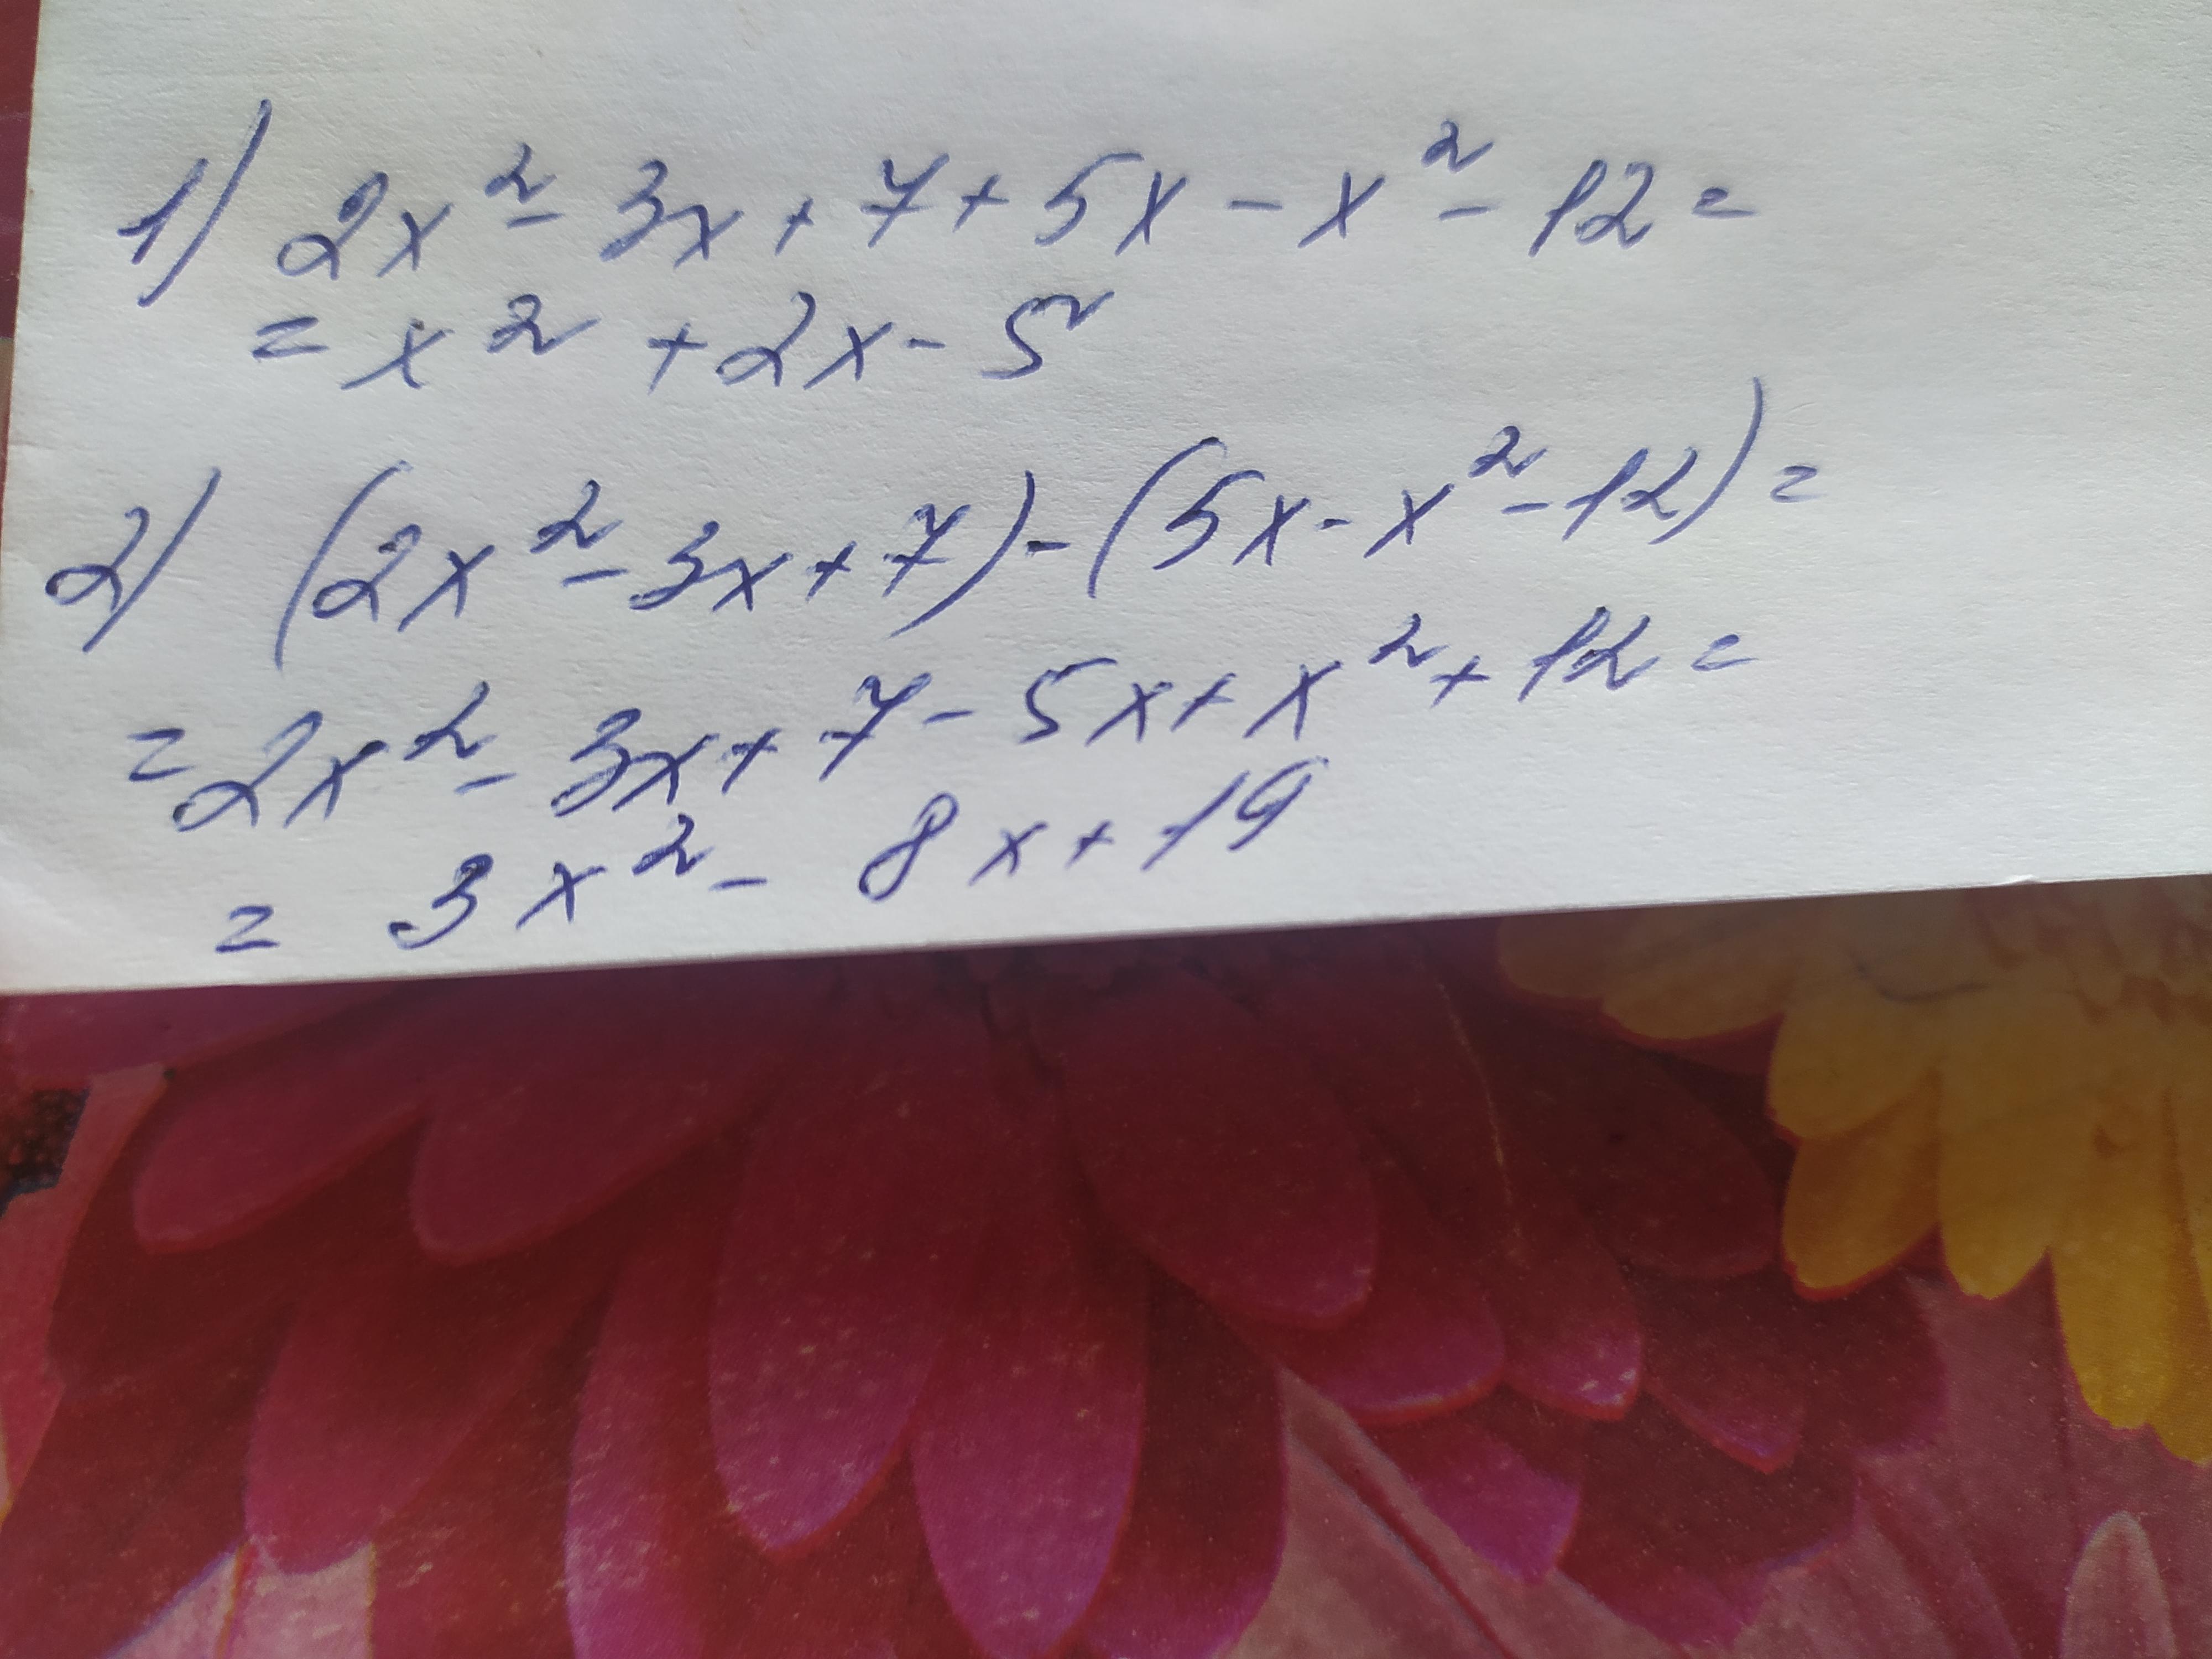 1) 2x² - 3x + 7 + 5x - x² - 12 =
= x² + 2x - 5
2) (2x² - 3x + 7) - (5x - x² - 12) =
= 2x² - 3x + 7 - 5x + x² + 12 =
= 3x² - 8x + 19